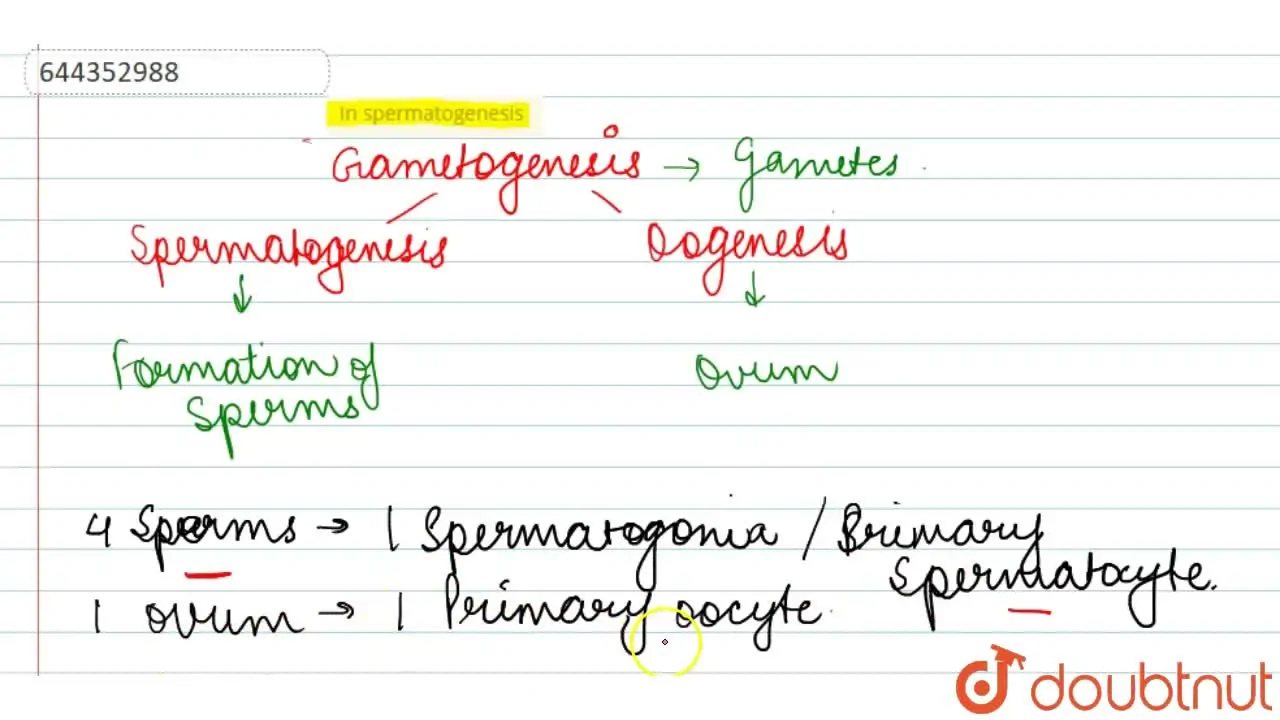 644352988
In spermatogenesis
Gametogenesis → Gametes
Spermatogenesis Oogenesis
↓ ↓
Formation of Ovum
Sperms
4 Sperms → 1 Spermatogonia / Primary
Spermatocyte.
1 ovum → 1 Primary oocyte
doubtnut